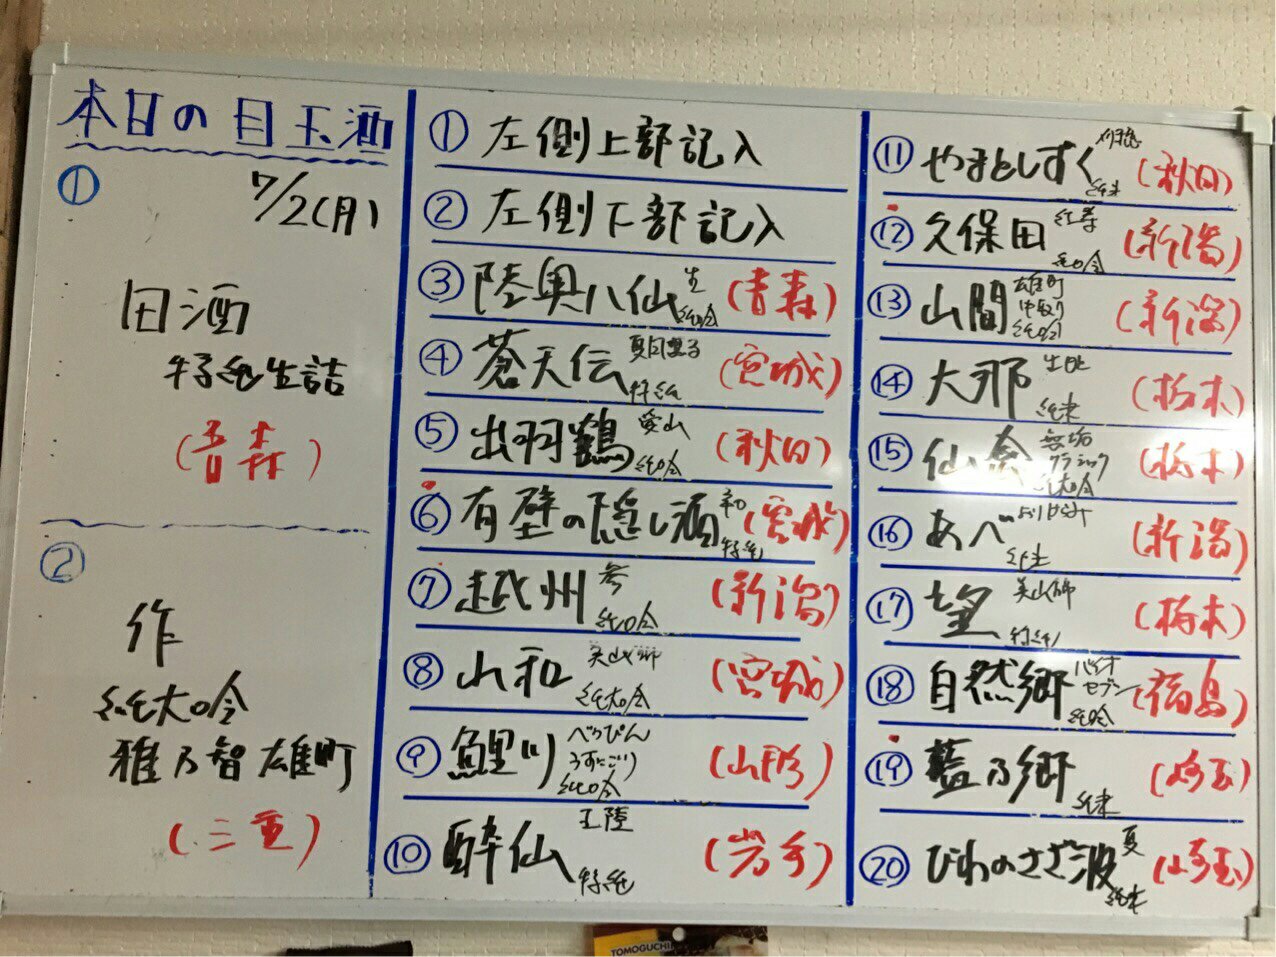 本日の目玉酒
①
7/2(月)
田酒
特純生詰
(青森)
②
作
純大吟
雅乃智 雄町
(三重)
① 左側上部記入
② 左側下部記入
③ 陸奥八仙 生 純吟 (青森)
④ 蒼天伝 特純 (宮城)
⑤ 出羽鶴 愛山 純吟 (秋田)
⑥ 有壁の隠し酒 和 特純 (宮城)
⑦ 越州 参 純吟 (新潟)
⑧ 山和 美山錦 純大吟 (宮城)
⑨ 鯉川 べっぴん うすにごり 純吟 (山形)
⑩ 酔仙 特純 (岩手)
⑪ やまとしずく 純米 (秋田)
⑫ 久保田 紅寿 純吟 (新潟)
⑬ 山間 雄町 中取り 純吟 (新潟)
⑭ 大那 純米 (栃木)
⑮ 仙禽 無垢 クラシック 純大吟 (栃木)
⑯ あべ おりがらみ 純米 (新潟)
⑰ 望 美山錦 特純 (栃木)
⑱ 自然郷 バイオ セブン 純吟 (福島)
⑲ 藍乃郷 純米 (埼玉)
⑳ びわのさざ波 夏 純米 (埼玉)
TOMOGUCHI